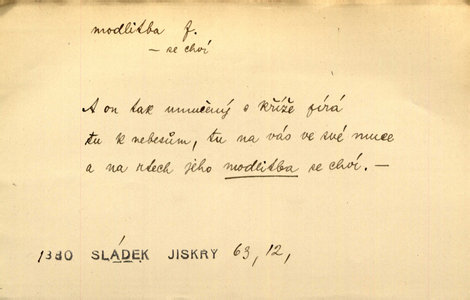 modlitba f.
— se chví
A on tak umučený s kříže fírá
tu k nebesům, tu na vás ve své muce
a na rtech jeho modlitba se chví. —
1880 SLÁDEK JISKRY 63, 12,